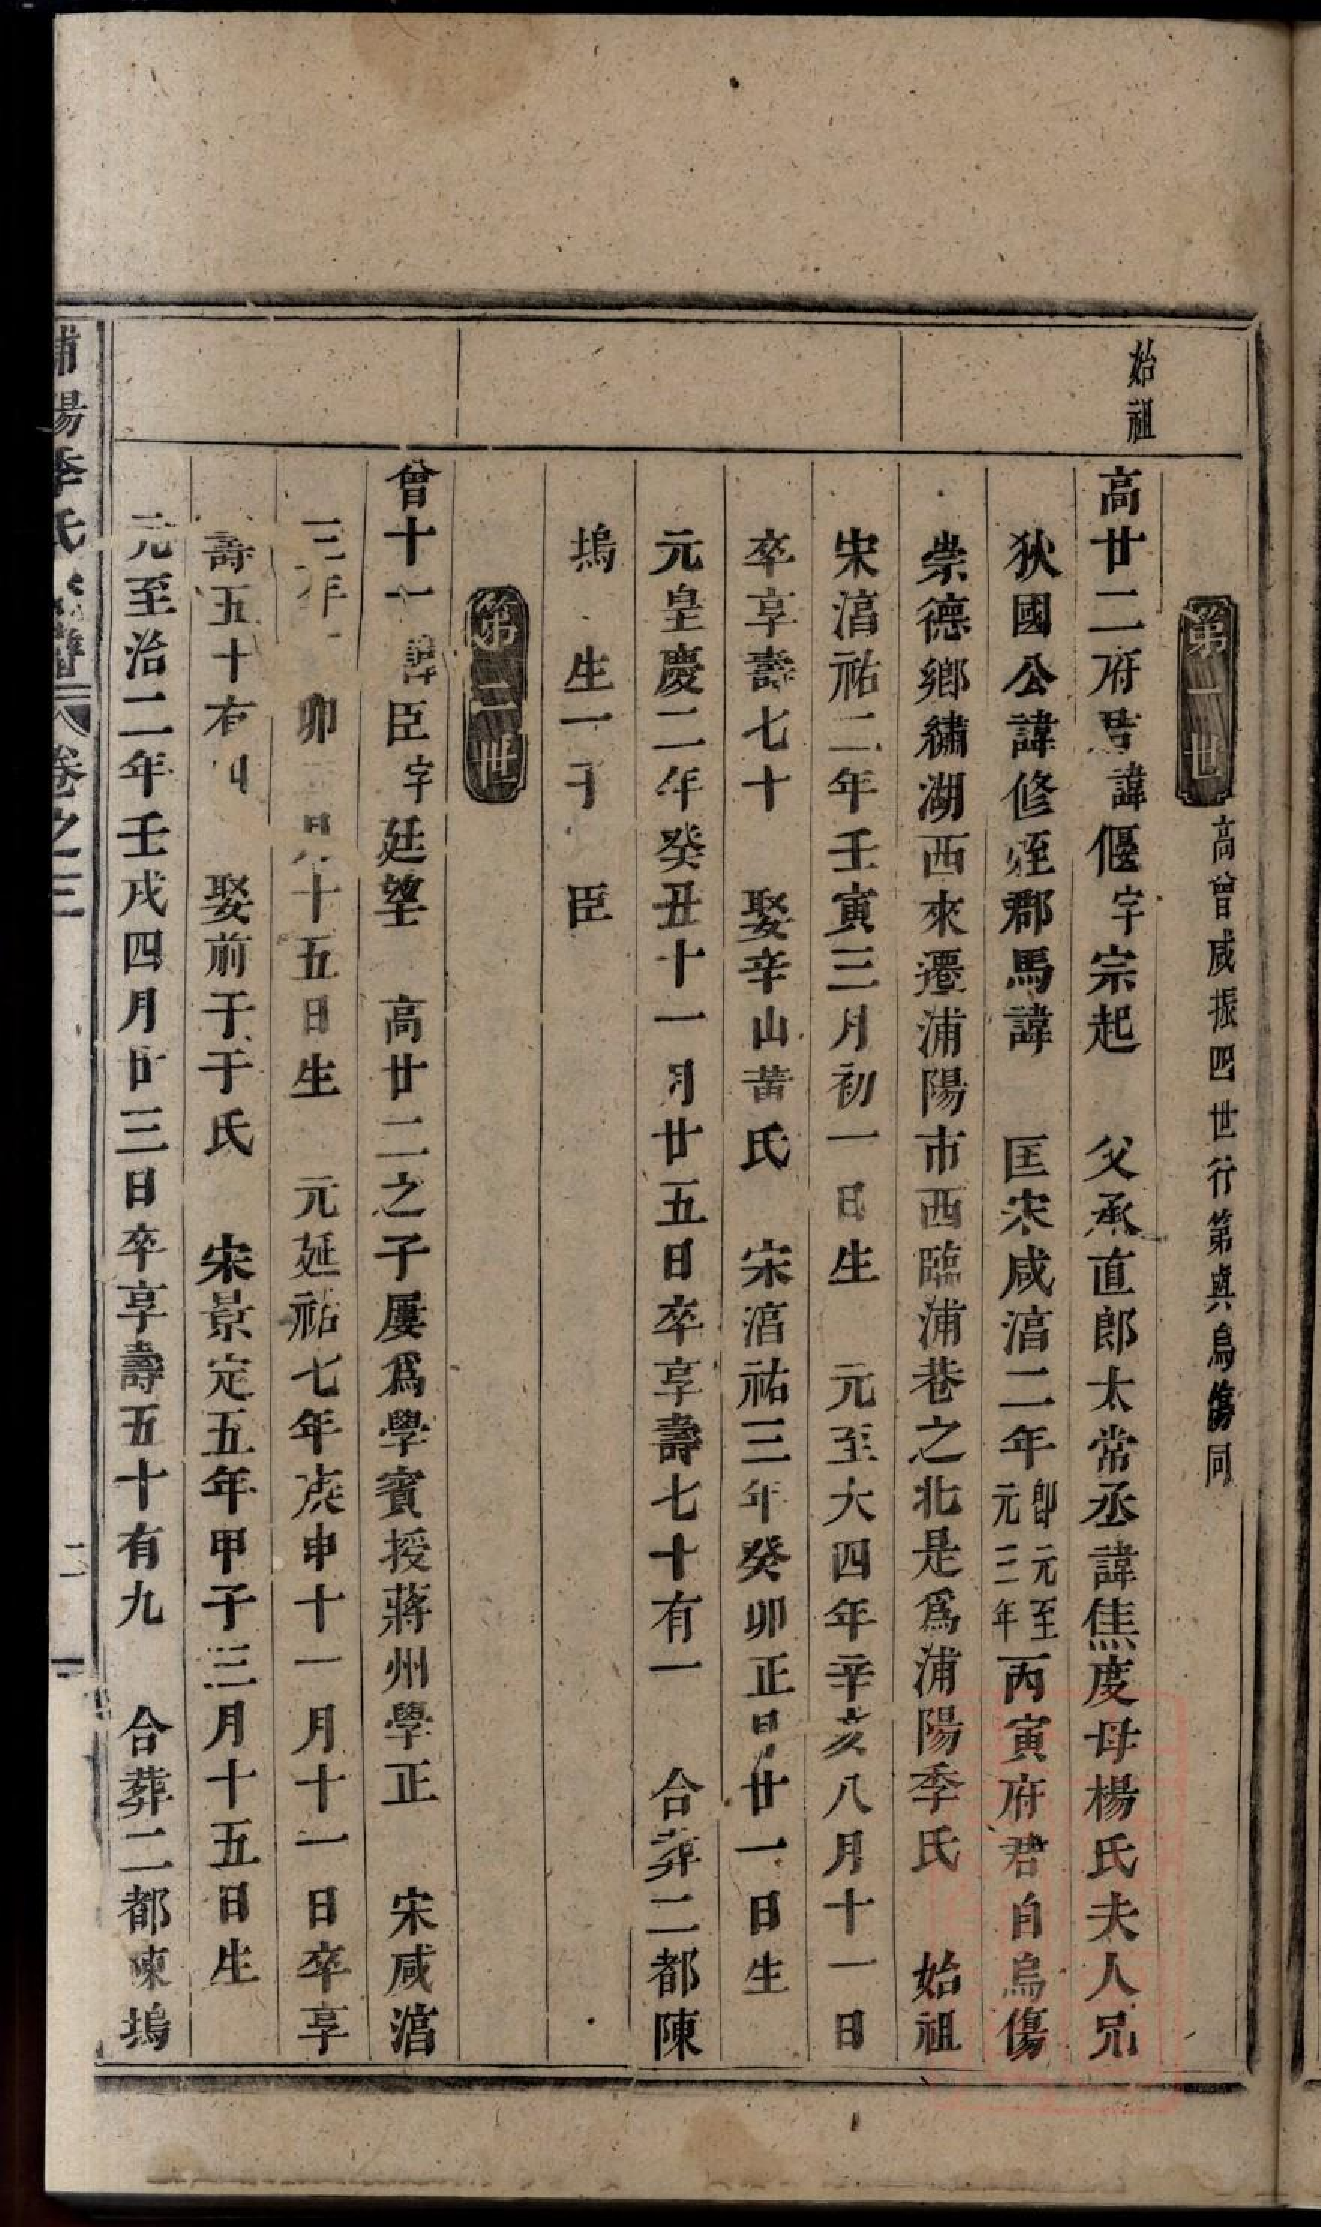 始祖
第一世 高曾咸振四世行第與烏傷同
高廿二府君諱偃字宗起 父承直郎太常丞諱焦度母楊氏夫人兄
狄國公諱修姪郡馬諱 匡宋咸湻二年卽元至元三年丙寅府君自烏傷
崇德鄉繡湖西來遷浦陽市西臨浦巷之北是爲浦陽季氏 始祖
宋湻祐二年壬寅三月初一日生 元至大四年辛亥八月十一日
卒享壽七十 娶辛山黃氏 宋湻祐三年癸卯正月廿一日生
元皇慶二年癸丑十一月廿五日卒享壽七十有一 合葬二都陳
塢 生一子 臣
第二世
曾十一諱臣字廷望 高廿二之子屢爲學賓授蔣州學正 宋咸湻
三年 卯 月十五日生 元延祐七年庚申十一月十一日卒享
壽五十有四 娶前于于氏 宋景定五年甲子三月十五日生
元至治二年壬戌四月廿三日卒享壽五十有九 合葬二都陳塢
浦陽季氏宗譜 卷之三 二